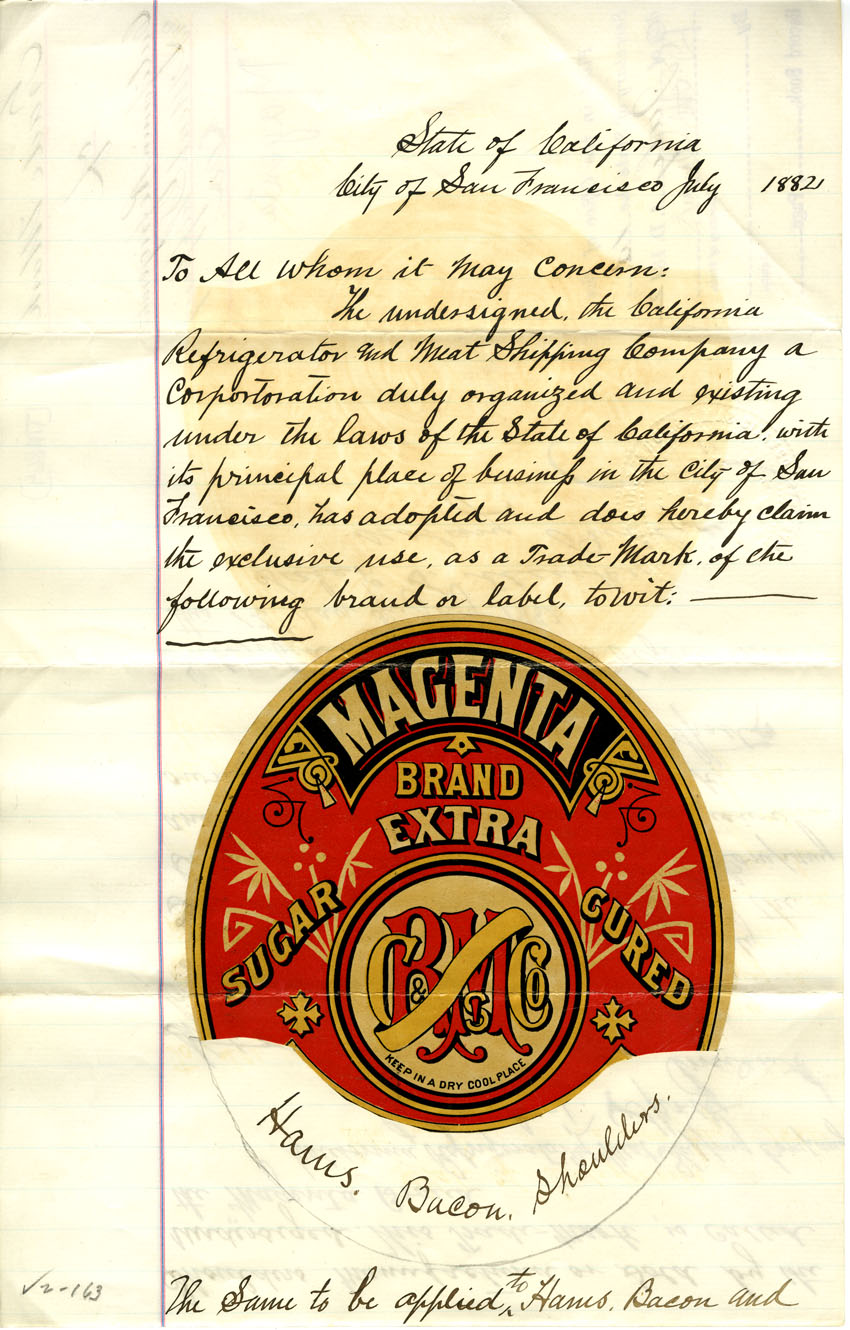 State of California
City of San Francisco July 1882
To All Whom it May Concern:
The undersigned, the California
Refrigerator and Meat Shipping Company a
Corportoration duly organized and existing
under the laws of the State of California, with
its principal place of business in the City of San
Francisco, has adopted and does hereby claim
the exclusive use, as a Trade-Mark, of the
following brand or label, to wit:
MAGENTA
BRAND
EXTRA
SUGAR CURED
KEEP IN A DRY COOL PLACE
Hams. Bacon. Shoulders.
The Same to be applied to Hams, Bacon and